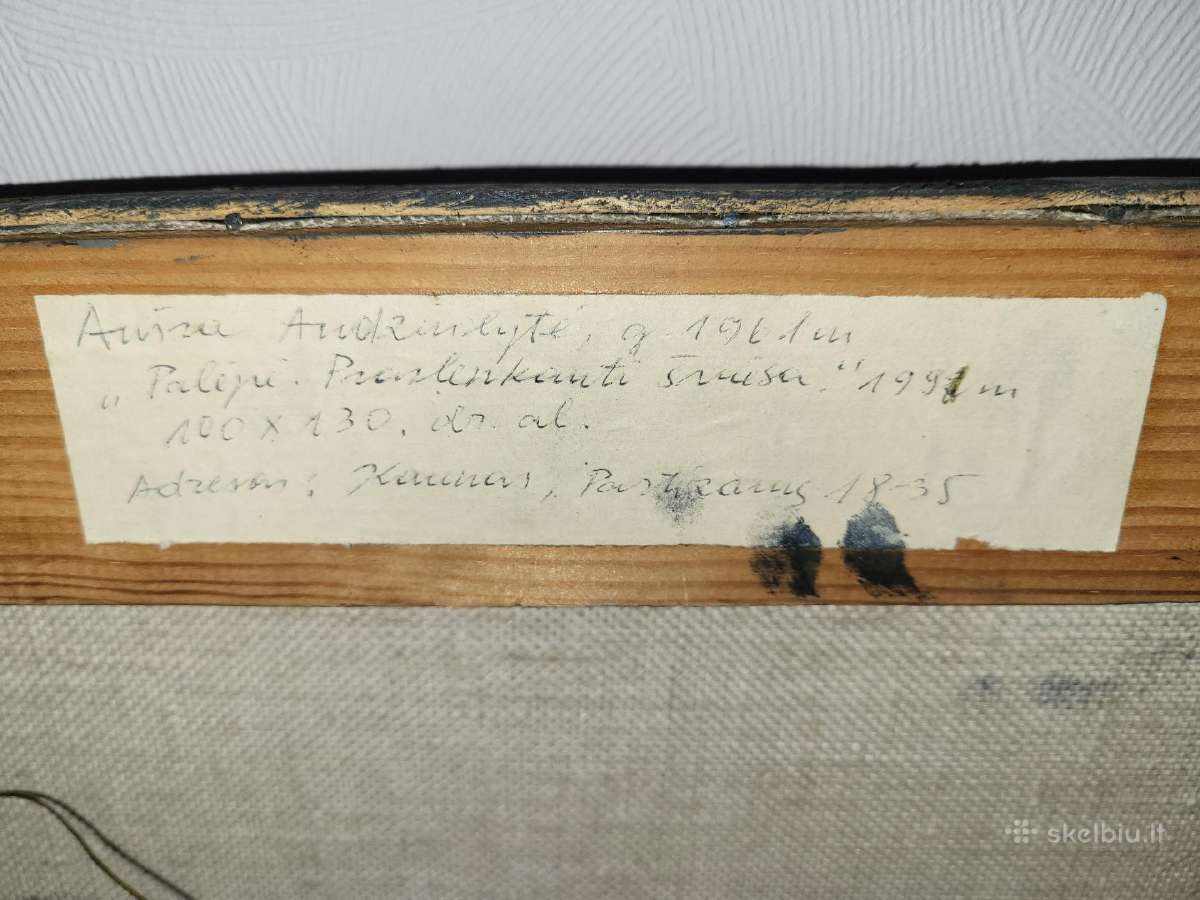 Aušra Andziulytė, g. 1961 m
„Palėpė. Praslenkanti šviesa." 1991 m
100 x 130. dr. al.
Adresas: Kaunas, Partizanų 18-35
skelbiu.lt